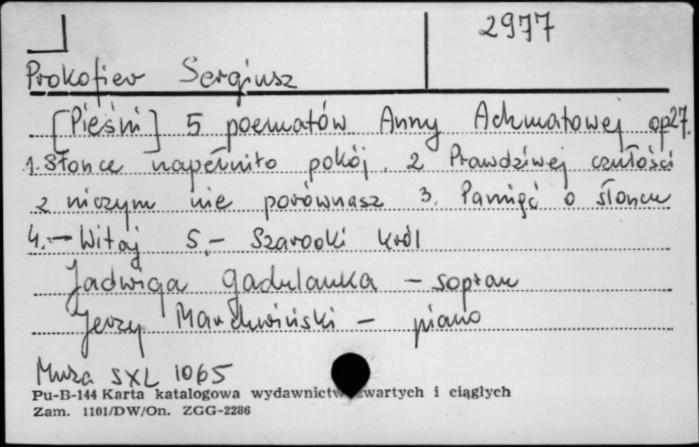 2977
Prokofiew Sergiusz
[Pieśni] 5 poematów Anny Achmatowej op27
1. Słońce napełniło pokój. 2 Prawdziwej czułości
z niczym nie porównasz 3. Pamięć o słońcu
4. – Witaj 5. – Szarooki król
Jadwiga Gadulanka – sopran
Jerzy Marchwiński – piano
Muza SXL 1065
Pu-B-144 Karta katalogowa wydawnictw zwartych i ciągłych
Zam. 1101/DW/On. ZGG-2286